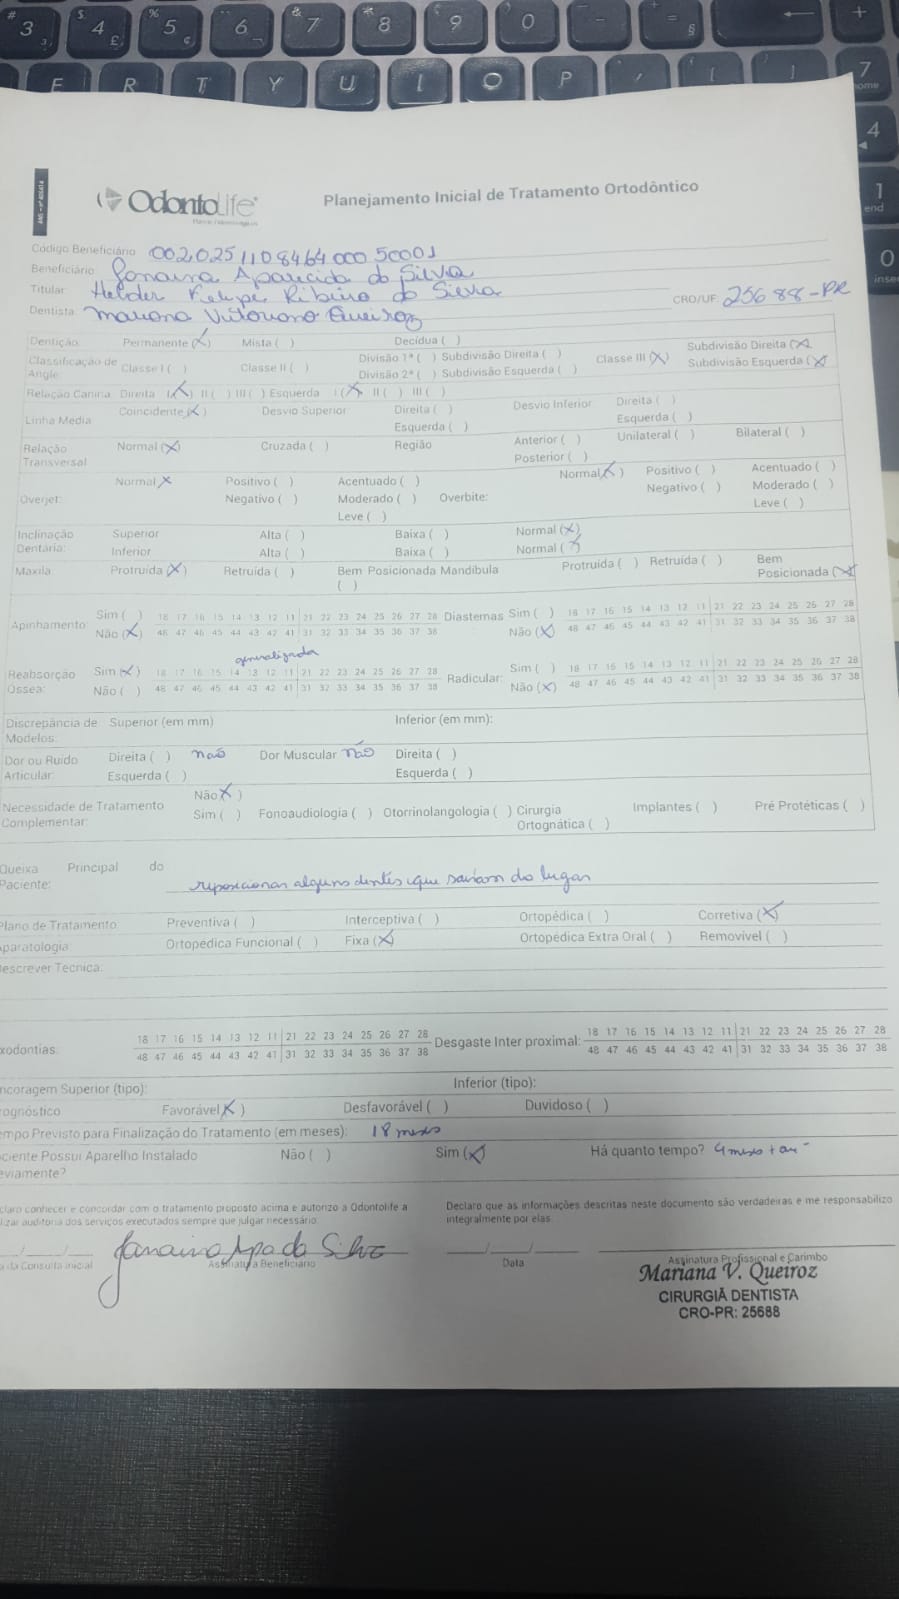 # 3 $ 4 £ % 5 ¢ 6 & 7 * 8 ( 9 ) 0 - + = § +
E R T Y U I O P 7 home
4
1 end
0 inser
OdontoLife
Planejamento Inicial de Tratamento Ortodôntico
Código Beneficiário: 00202511084640005 0001
Beneficiário: Janaina Aparecida da Silva
Titular: Helider Felipe Ribeiro da Silva
CRO/UF: 25688-PR
Dentista: Mariana Vitoriano Queiroz
Dentição: Permanente (X) Mista ( ) Decídua ( )
Classificação de Angle: Classe I ( ) Classe II ( ) Divisão 1ª ( ) Subdivisão Direita ( ) Classe III (X) Subdivisão Direita (X)
Divisão 2ª ( ) Subdivisão Esquerda ( ) Subdivisão Esquerda (X)
Relação Canina: Direita I (X) II ( ) III ( ) Esquerda I (X) II ( ) III ( )
Linha Média Coincidente (X) Desvio Superior Direita ( ) Desvio Inferior Direita ( )
Esquerda ( ) Esquerda ( )
Relação Transversal: Normal (X) Cruzada ( ) Região Anterior ( ) Unilateral ( ) Bilateral ( )
Posterior ( )
Overjet: Normal X Positivo ( ) Acentuado ( ) Overbite: Normal X ) Positivo ( ) Acentuado ( )
Negativo ( ) Moderado ( ) Negativo ( ) Moderado ( )
Leve ( ) Leve ( )
Inclinação Superior Alta ( ) Baixa ( ) Normal (X)
Dentária: Inferior Alta ( ) Baixa ( ) Normal (X)
Maxila: Protruída (X) Retruída ( ) Bem Posicionada ( ) Mandíbula Protruída ( ) Retruída ( ) Bem Posicionada (X)
Apinhamento: Sim ( ) 18 17 16 15 14 13 12 11 21 22 23 24 25 26 27 28 Diastemas Sim ( ) 18 17 16 15 14 13 12 11 21 22 23 24 25 26 27 28
Não (X) 48 47 46 45 44 43 42 41 31 32 33 34 35 36 37 38 Não (X) 48 47 46 45 44 43 42 41 31 32 33 34 35 36 37 38
generalizada
Reabsorção Sim (X) 18 17 16 15 14 13 12 11 21 22 23 24 25 26 27 28 Radicular: Sim ( ) 18 17 16 15 14 13 12 11 21 22 23 24 25 26 27 28
Óssea: Não ( ) 48 47 46 45 44 43 42 41 31 32 33 34 35 36 37 38 Não (X) 48 47 46 45 44 43 42 41 31 32 33 34 35 36 37 38
Discrepância de Modelos: Superior (em mm) Inferior (em mm):
Dor ou Ruído Direita ( ) não Dor Muscular Não Direita ( )
Articular: Esquerda ( ) Esquerda ( )
Necessidade de Tratamento Complementar: Não X )
Sim ( ) Fonoaudiologia ( ) Otorrinolangologia ( ) Cirurgia Ortognática ( ) Implantes ( ) Pré Protéticas ( )
Queixa Principal do
Paciente: reposicionar alguns dentes que sairam do lugar
Plano de Tratamento: Preventiva ( ) Interceptiva ( ) Ortopédica ( ) Corretiva (X)
Aparatologia: Ortopédica Funcional ( ) Fixa (X) Ortopédica Extra Oral ( ) Removível ( )
escrever Técnica:
xodontias: 18 17 16 15 14 13 12 11 21 22 23 24 25 26 27 28 Desgaste Inter proximal: 18 17 16 15 14 13 12 11 21 22 23 24 25 26 27 28
48 47 46 45 44 43 42 41 31 32 33 34 35 36 37 38 48 47 46 45 44 43 42 41 31 32 33 34 35 36 37 38
ncoragem Superior (tipo): Inferior (tipo):
ognóstico Favorável X ) Desfavorável ( ) Duvidoso ( )
mpo Previsto para Finalização do Tratamento (em meses): 18 meses
ciente Possui Aparelho Instalado Não ( ) Sim (X) Há quanto tempo? 4 meses
eviamente?
claro conhecer e concordar com o tratamento proposto acima e autorizo a Odontolife a Declaro que as informações descritas neste documento são verdadeiras e me responsabilizo
lizar auditoria dos serviços executados sempre que julgar necessário. integralmente por elas.
__/__/__ Janaina Apa da Silva __/__/__
a da Consulta Inicial Assinatura Beneficiário Data Assinatura Profissional e Carimbo
Mariana V. Queiroz
CIRURGIÃ DENTISTA
CRO-PR: 25688